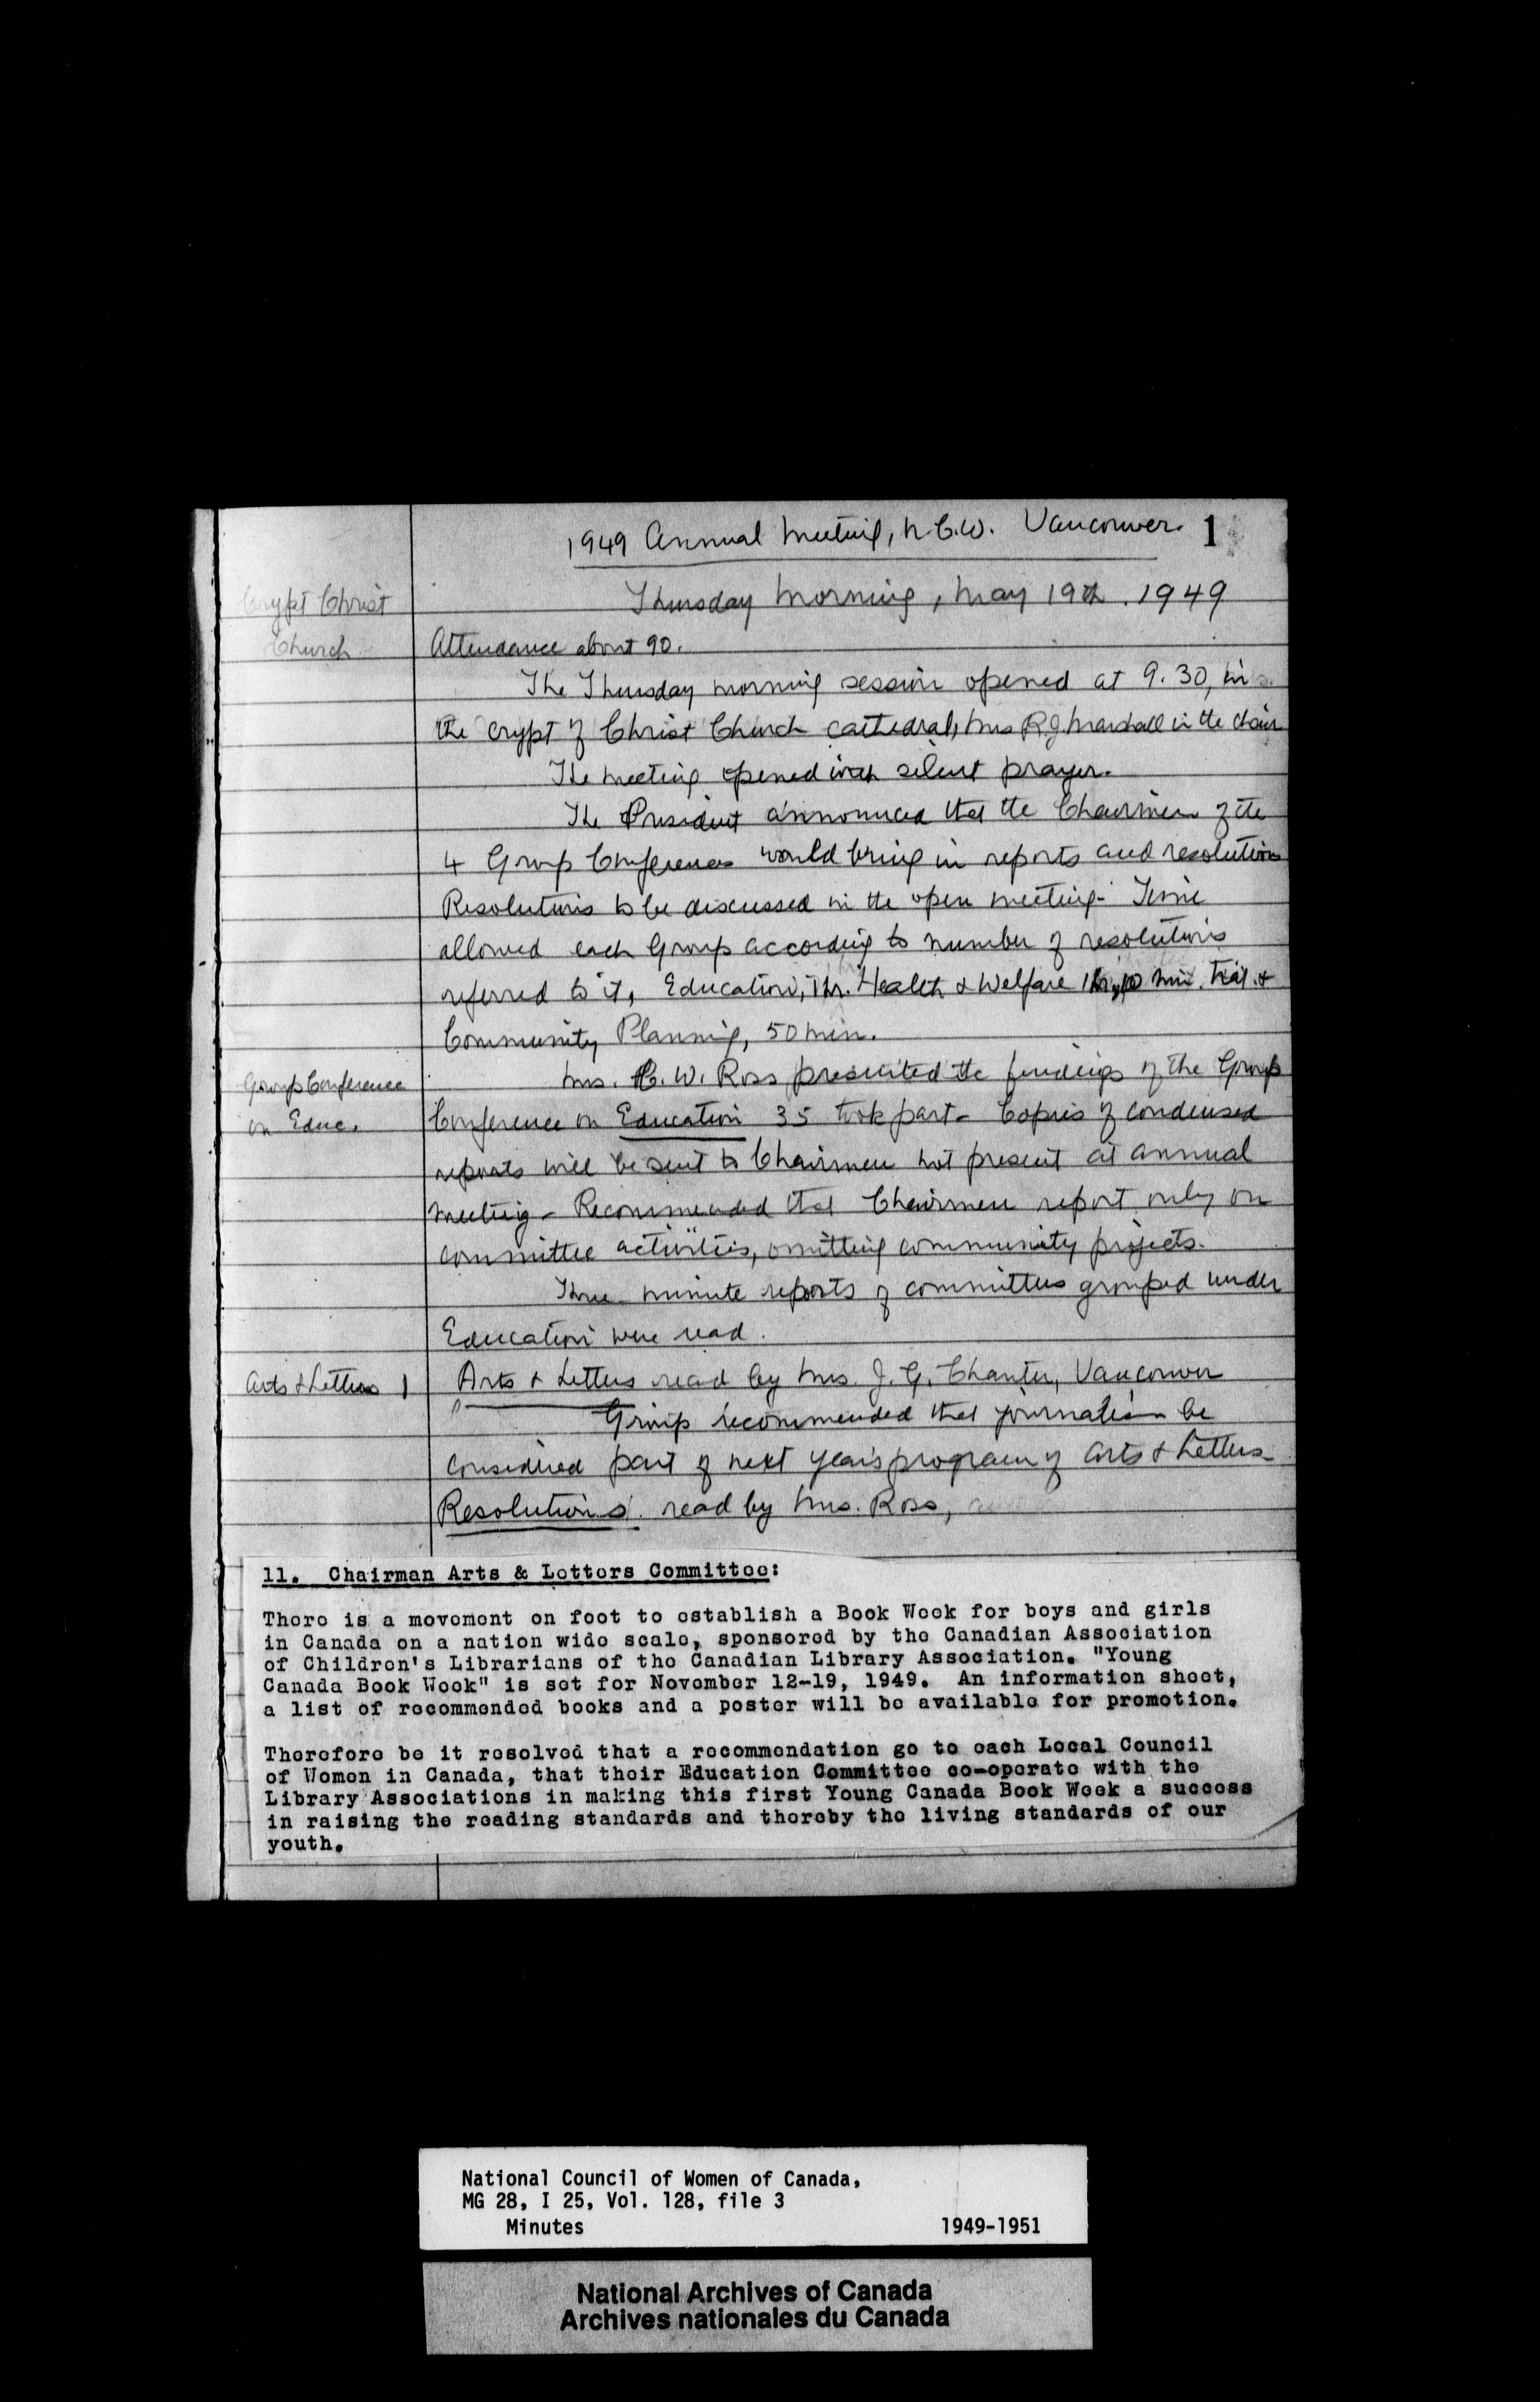 1949 Annual Meeting, N.C.W. Vancouver. 1
Thursday Morning, May 19th. 1949
Crypt Christ
Church
Attendance about 90.
The Thursday morning session opened at 9.30, in
the crypt of Christ Church Cathedral, Mrs R.J. Marshall in the chair
The meeting opened with silent prayer.
The President announced that the Chairmen of the
4 Group Conferences would bring in reports and resolutions
Resolutions to be discussed in the open meeting - Time
allowed each Group according to number of resolutions
referred to it, Education, 1 hr. Health & Welfare 1 hr, 10 min.
Community Planning, 50 min.
Group Conference
on Educ.
Mrs. C. W. Ross presented the findings of the Group
Conference on Education 35 took part - Copies of condensed
reports will be sent to Chairmen not present at annual
meeting - Recommended that Chairmen report only on
committee activities, omitting community projects.
Three minute reports of committees grouped under
Education were read.
Arts & Letters
Arts & Letters read by Mrs. J. G. Chanter, Vancouver
Group recommended that journalism be
considered part of next year's program of Arts & Letters
Resolutions read by Mrs. Ross,
11. Chairman Arts & Letters Committee:
There is a movement on foot to establish a Book Week for boys and girls
in Canada on a nation wide scale, sponsored by the Canadian Association
of Children's Librarians of the Canadian Library Association. "Young
Canada Book Week" is set for November 12-19, 1949. An information sheet,
a list of recommended books and a poster will be available for promotion.
Therefore be it resolved that a recommendation go to each Local Council
of Women in Canada, that their Education Committee co-operate with the
Library Associations in making this first Young Canada Book Week a success
in raising the reading standards and thereby the living standards of our
youth.
National Council of Women of Canada,
MG 28, I 25, Vol. 128, file 3
Minutes 1949-1951
National Archives of Canada
Archives nationales du Canada